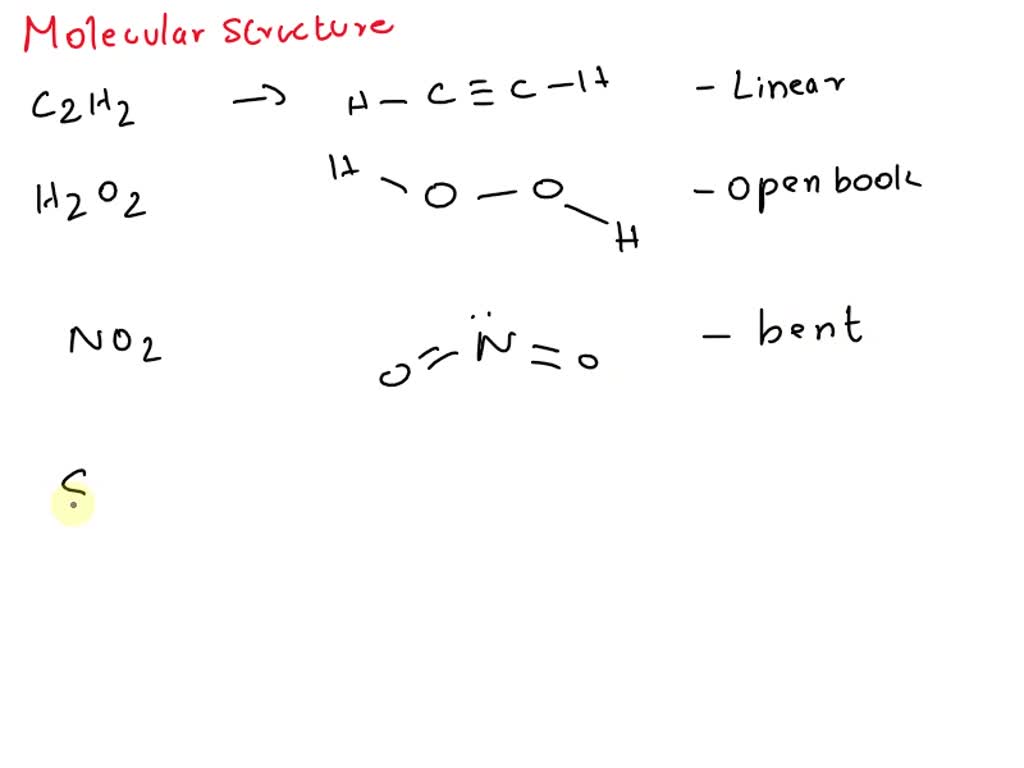 Molecular structure
C2H2 → H – C ≡ C – H – Linear
H2O2 H – O – O – H – Open book
NO2 O = N̈ = O – bent
S